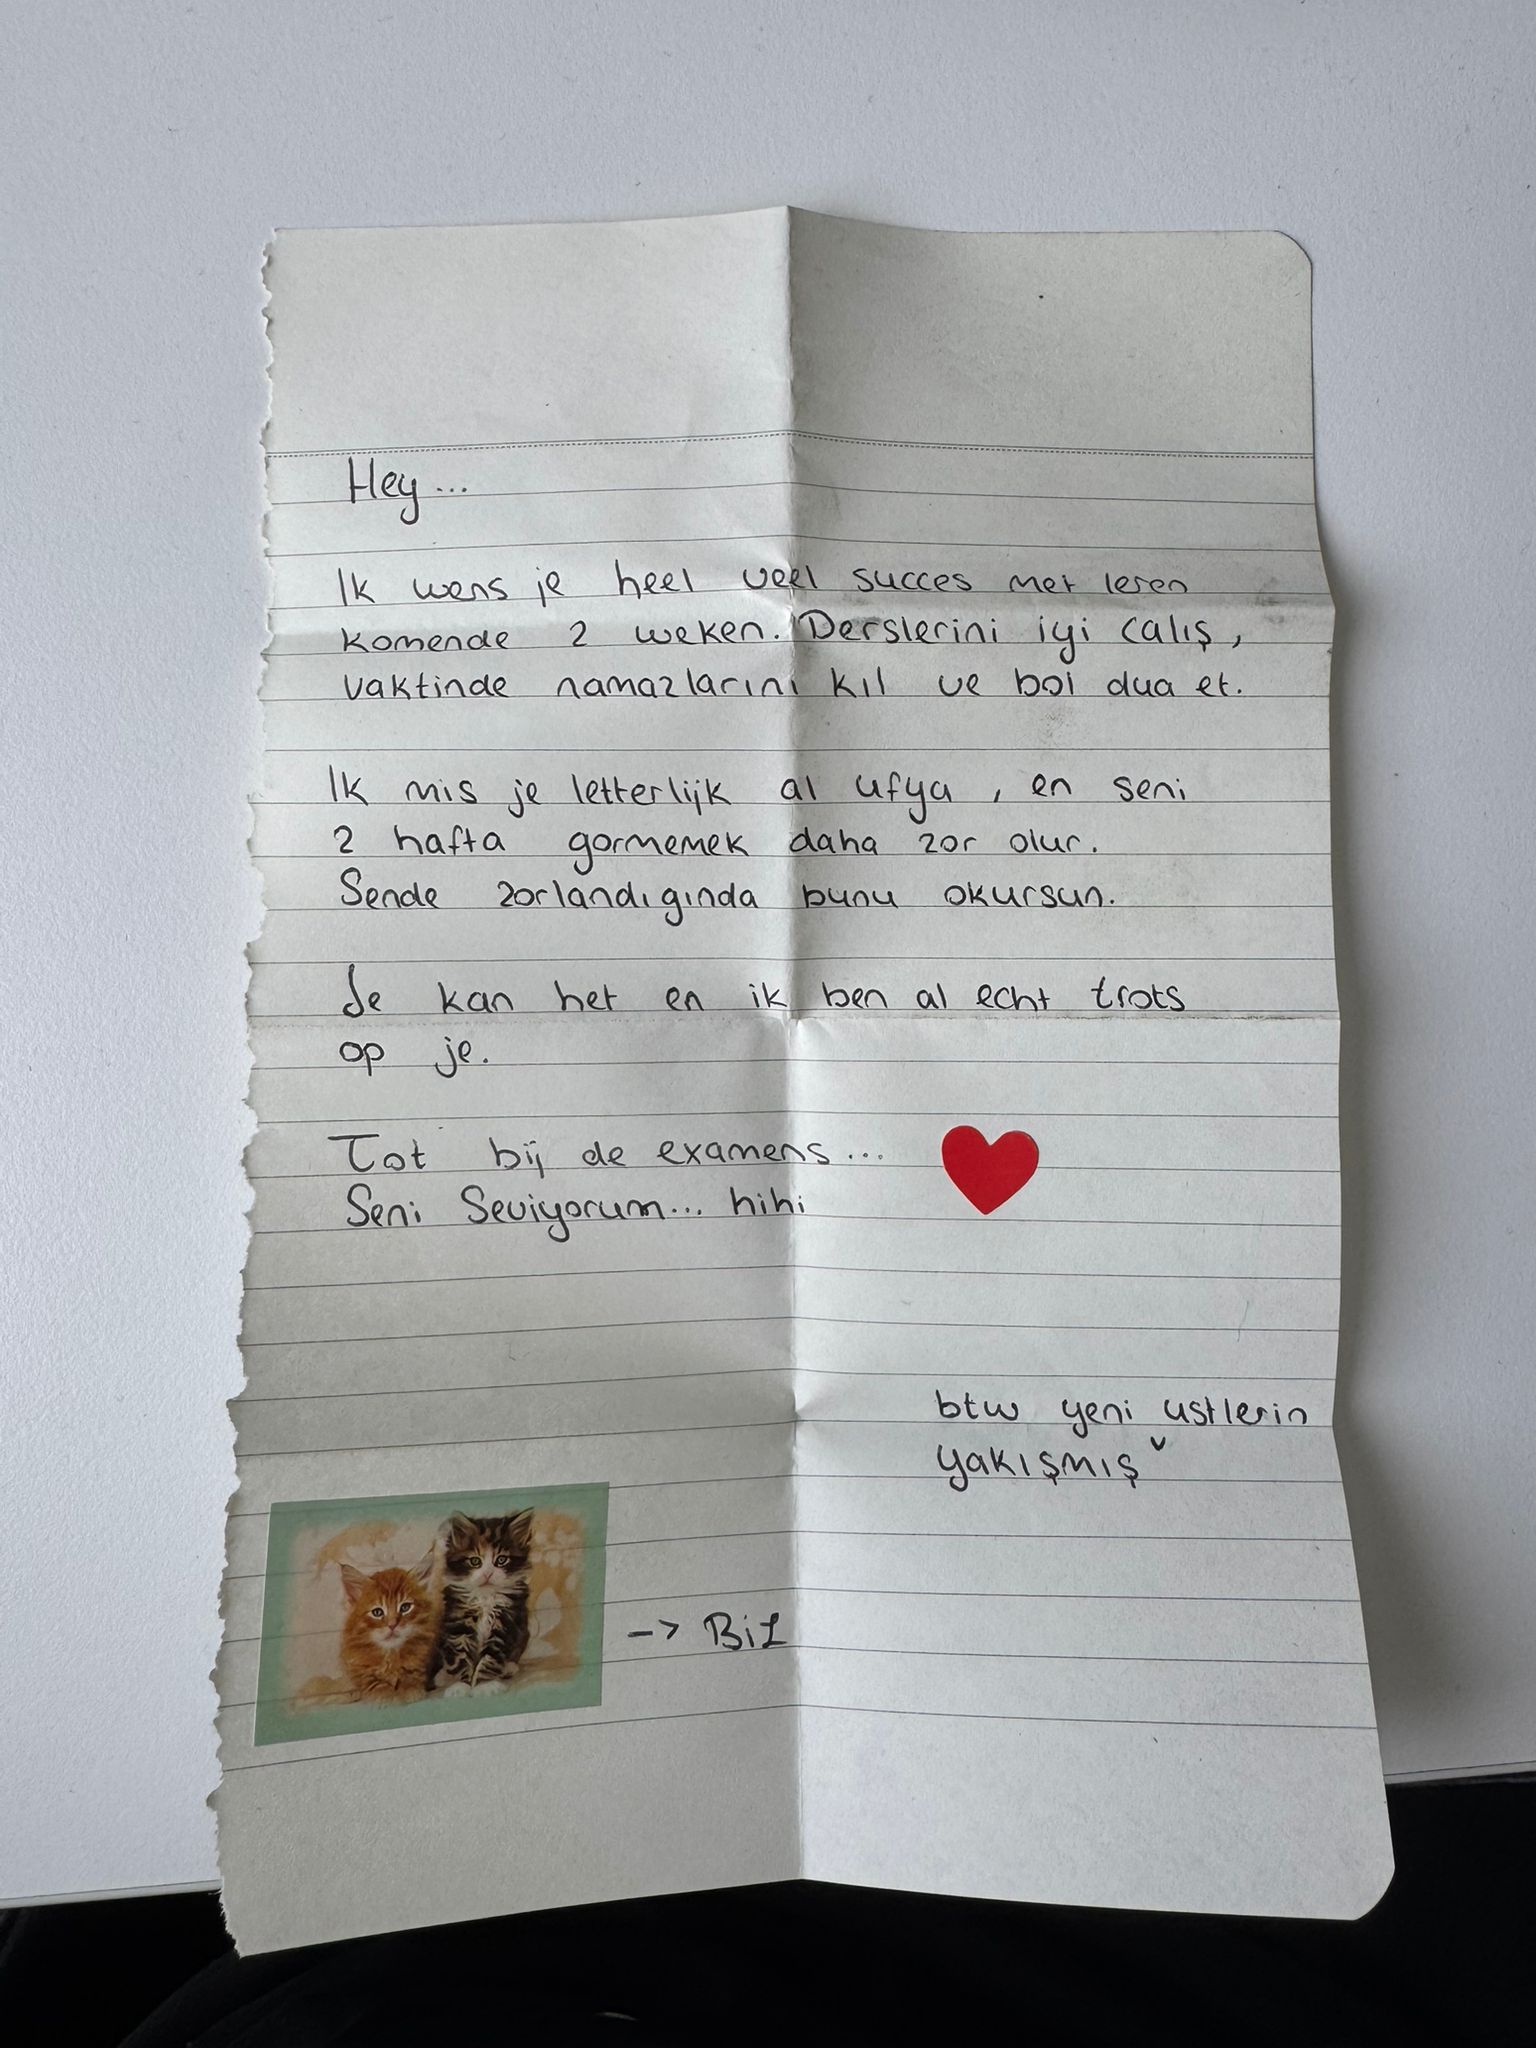 Hey...
Ik wens je heel veel succes met leren
komende 2 weken. Derslerini iyi calış,
vaktinde namazlarını kıl ve bol dua et.
Ik mis je letterlijk al ufya, en seni
2 hafta gormemek daha zor olur.
Sende zorlandıgında bunu okursun.
Je kan het en ik ben al echt trots
op je.
Tot bij de examens...
Seni Seviyorum... hihi
btw yeni ustlerin
yakışmış
-> Biz